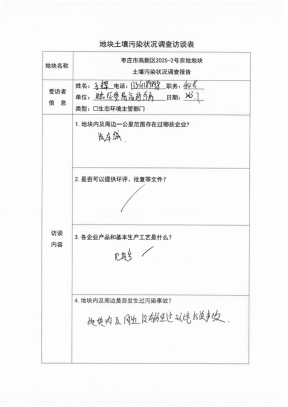 地块土壤污染状况调查访谈表
地块名称
枣庄市高新区2025-2号宗地地块
土壤污染状况调查报告
受访者
信 息
姓名: 电话: 职务:
单位: 日期:
类型:☐生态环境主管部门
访谈
内容
1. 地块内及周边一公里范围存在过哪些企业?
汽车城
2. 是否可以提供环评、批复等文件?
3. 各企业产品和基本生产工艺是什么?
4. 地块内及周边是否发生过污染事故?
地块内及周边没有发生过环境污染事故.